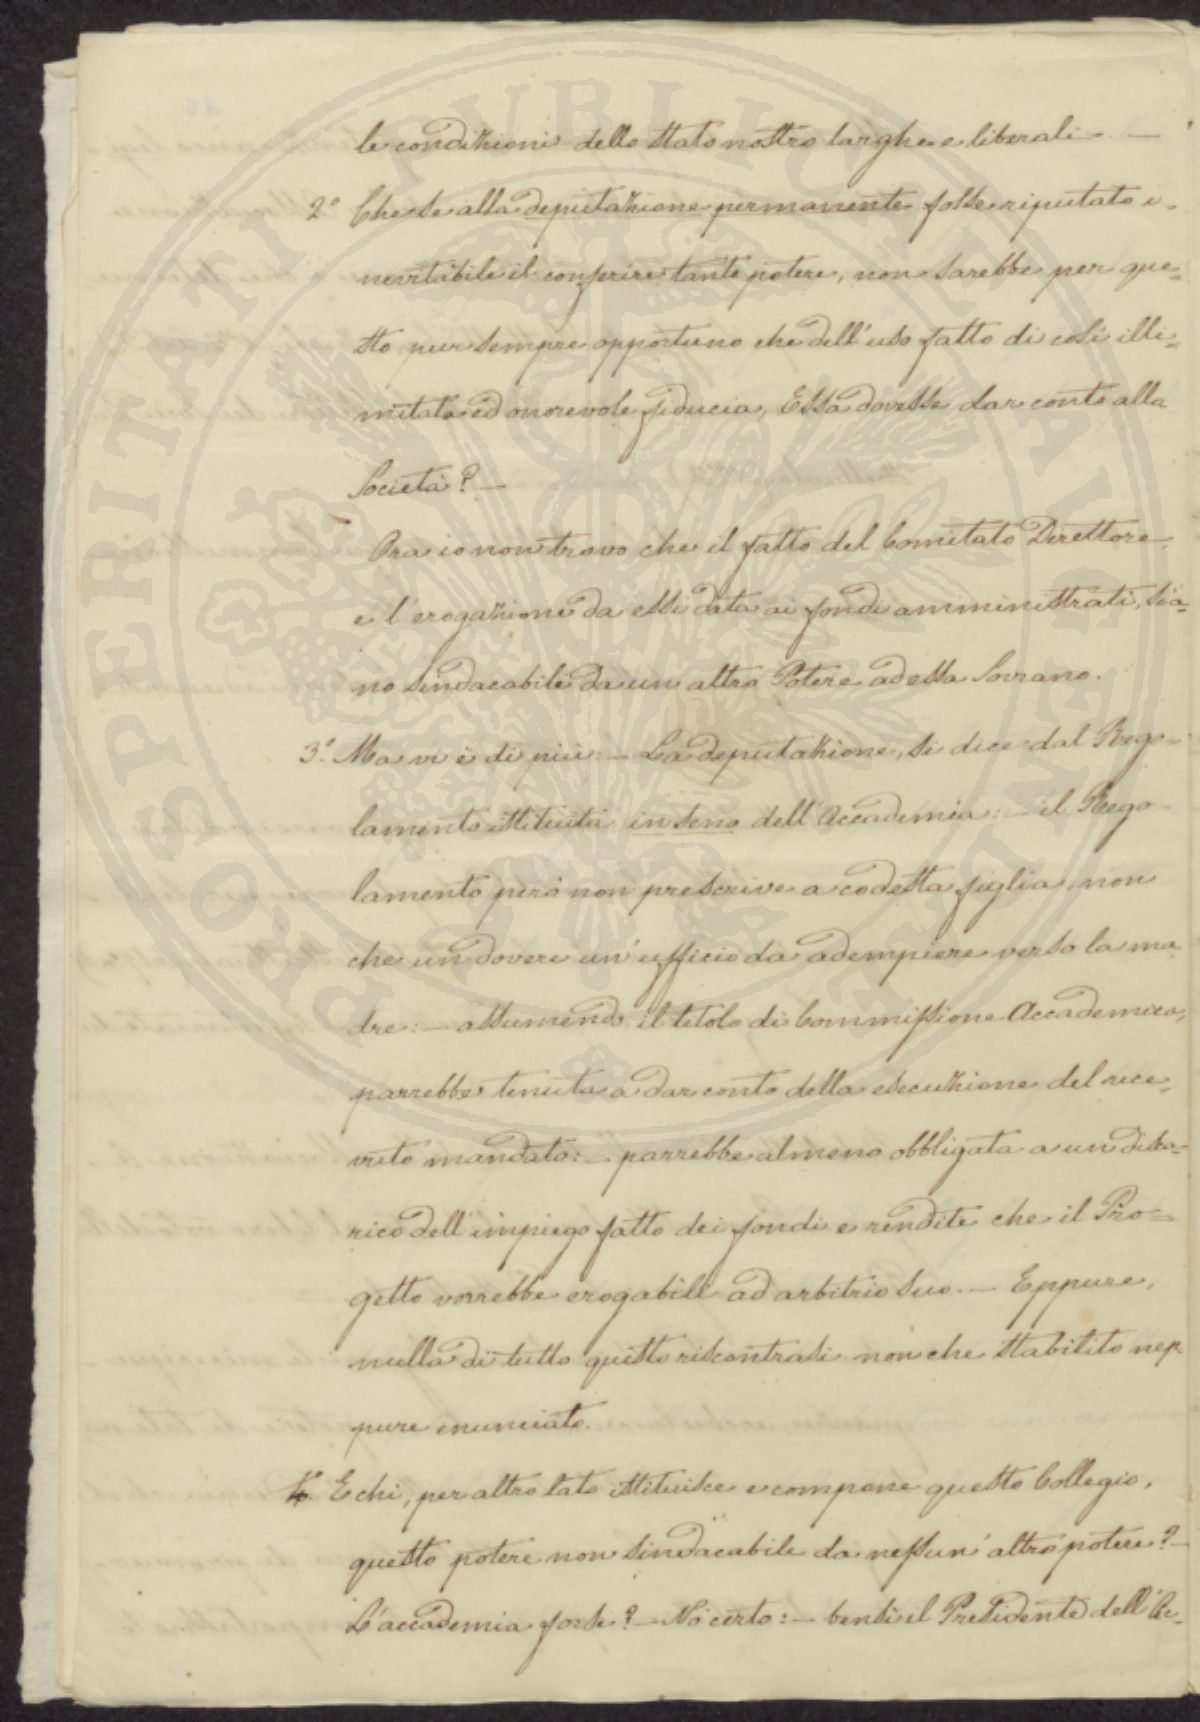 le condizioni dello stato nostro larghe e liberali — —
2.° Che se alla deputazione permanente fosse riputato i-
nevitabile il conferire tanto potere, non sarebbe per que=
sto pur sempre opportuno che dell'uso fatto di così illi=
mitata ed onorevole fiducia, Essa dovesse dar conto alla
Società? —
Ora io non trovo che il fatto del Comitato Direttore
e l'erogazione da essi data ai fondi amministrati, sia=
no sindacabile da un altro Potere ad essa Sovrano.
3.° Ma vi è di più: — La deputazione, si dice dal Rego=
lamento istituita in seno dell'Accademia: — il Rego
lamento però non prescrive a codesta figlia, non
che un dovere un'ufficio da adempiere verso la ma
dre: — assumendo il titolo di Commissione Accademica,
parrebbe tenuta a dar conto della esecuzione del rice=
vuto mandato: — parrebbe almeno obbligata a un disca=
rico dell'impiego fatto dei fondi e rendite che il Pro=
getto vorrebbe erogabili ad arbitrio suo. — Eppure,
nulla di tutto questo riscontrasi non che stabilito nep
pure enunciato.
4.° E chi, per altro lato istituisce e compone questo Collegio,
questo potere non sindacabile da nessun'altro potere? —
L'accademia forse? — No certo: — bensì il Presidente dell'Ac=
PROSPERITATI PUBLICAE AUGENDAE